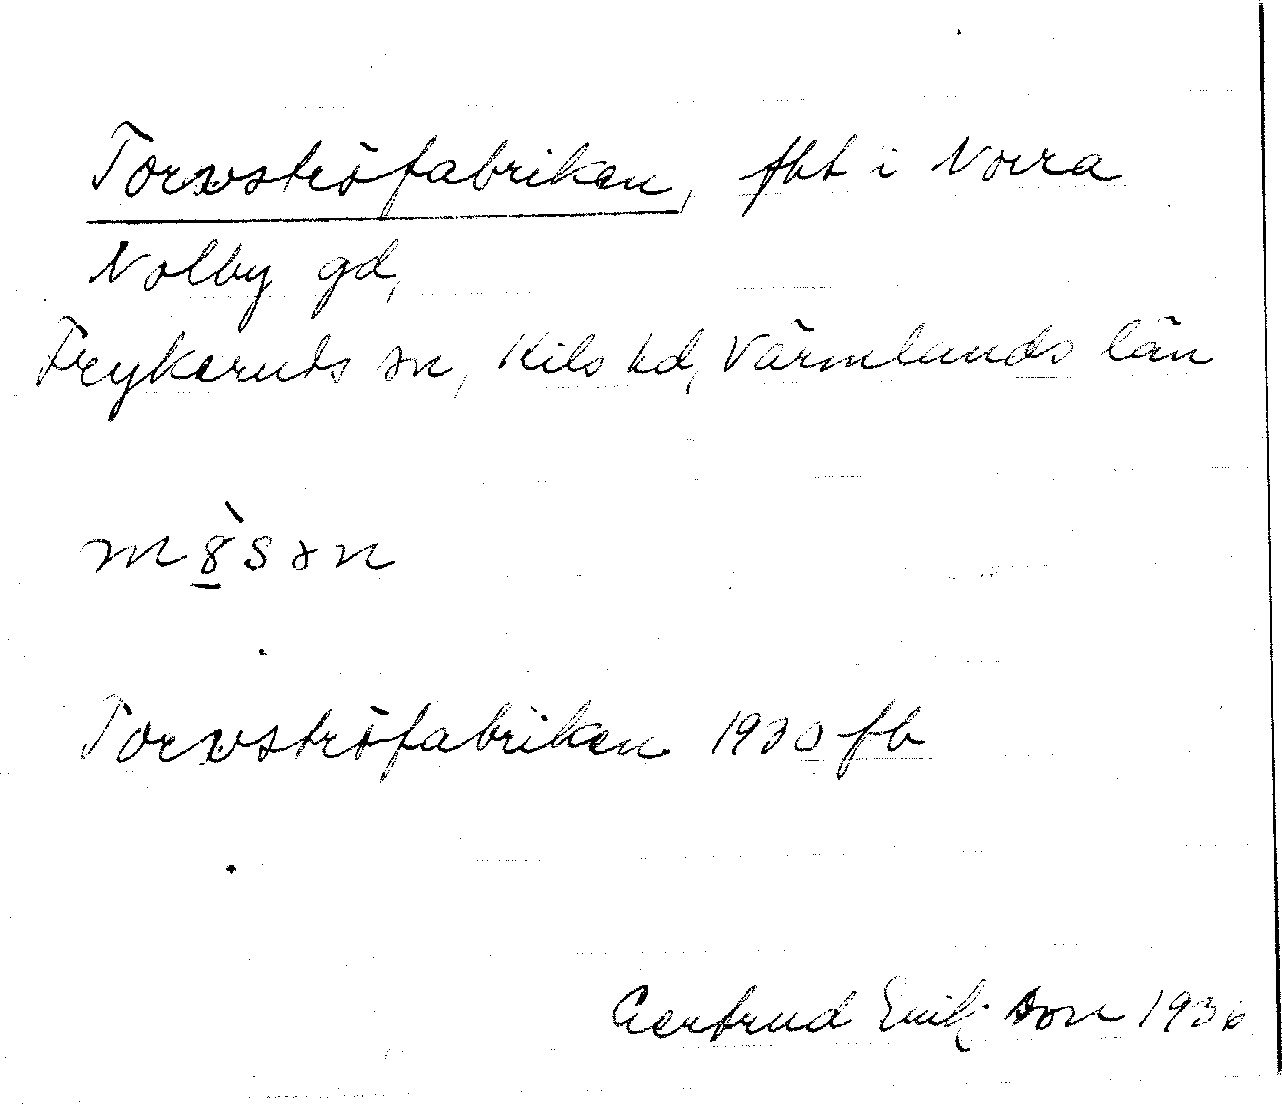 Torvströfabriken, fbt i Norra
Nolby gd,
Frykeruds sn, Kils hd, Värmlands län
Torvströfabriken 1930 fb
Gertrud Erikson 1936